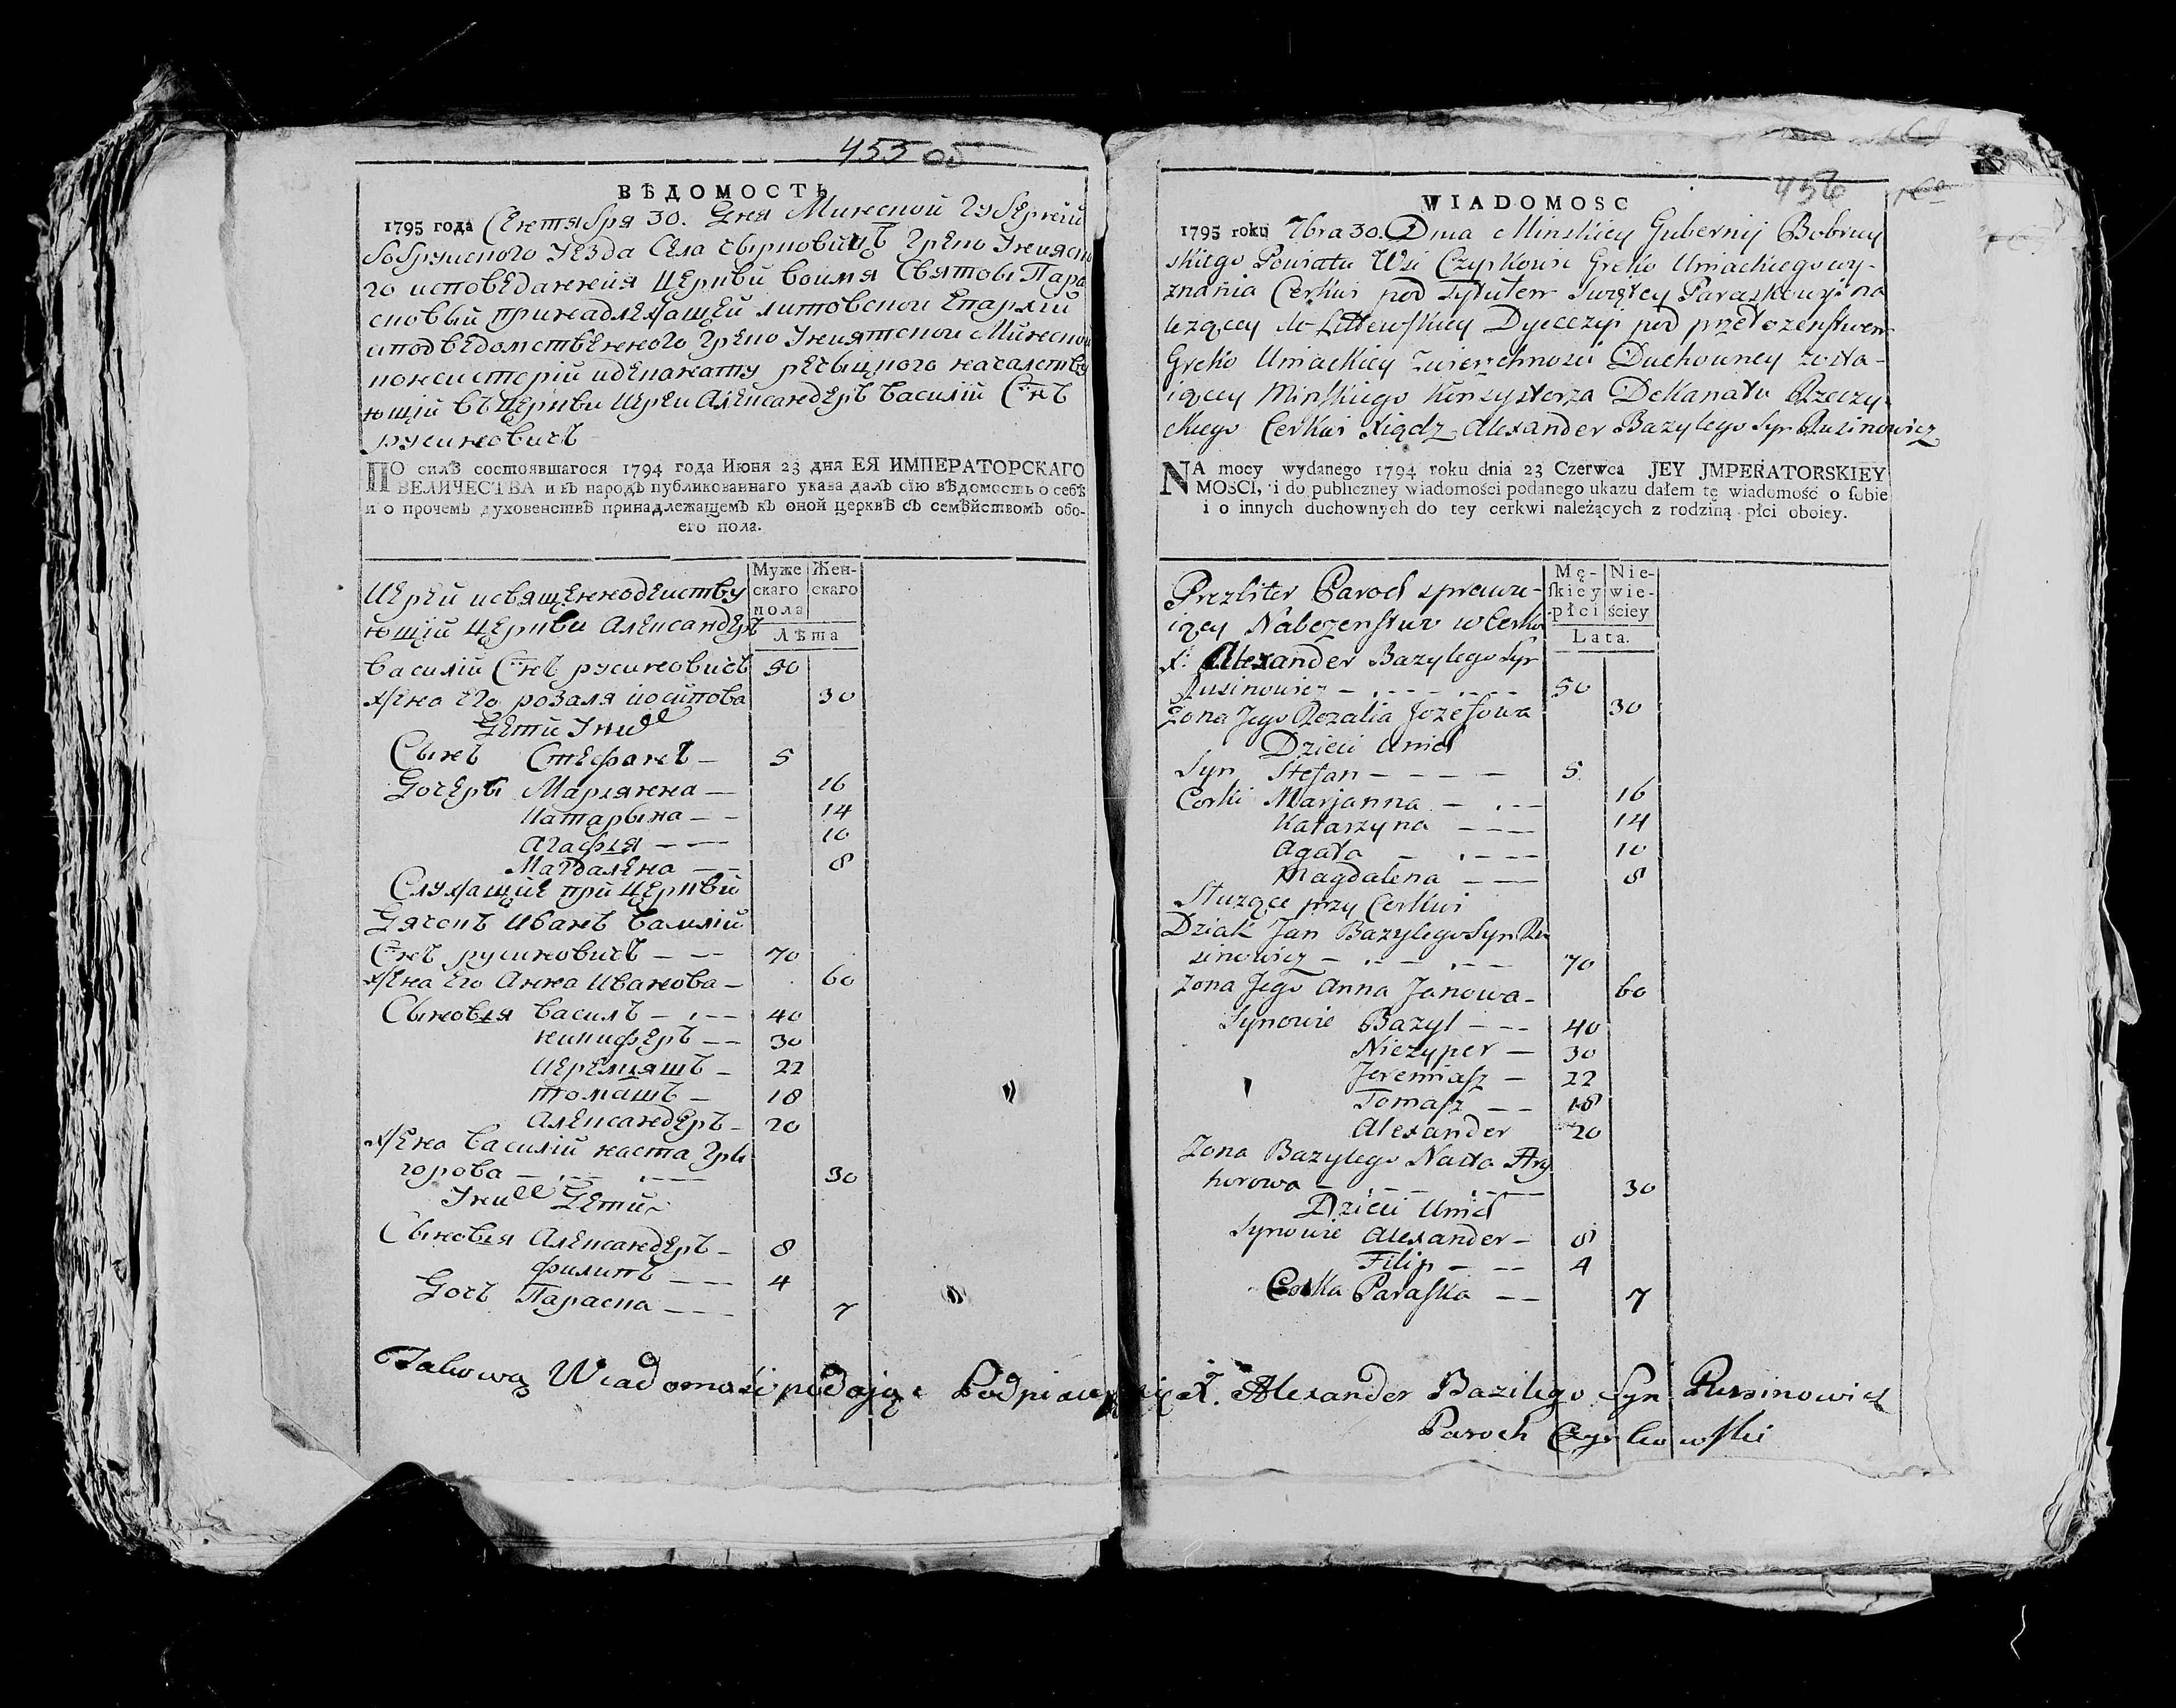 455 об
ВѢДОМОСТЬ
1795 года Сентября 30. Дня Минской Губерніи
бобруйского уезда Села Чырковичъ Греко Униятско
го исповеданния Церкви воимя Святои Пара
сковьи принадлежащей литовской Епархіи
иподведомственного Греко Униятской Минской
консисторіи идеканату речыцкого началству
ющій въ Церкви Иереи Александеръ Василій Снъ
русиновичъ
ПО силѣ состоявшагося 1794 года Июня 23 дня ЕЯ ИМПЕРАТОРСКАГО
ВЕЛИЧЕСТВА и въ народъ публикованнаго указа далъ сію вѣдомость о себѣ
и о прочемъ духовенствѣ принадлежащемъ къ оной церквѣ съ семѣйствомъ обо-
его пола.
Муже Жен-
скаго скаго
пола
Лѣта
Иерей исвященнодеиству
ющій Церкви Александеръ
Василій Снъ русиновичъ 50
жена Его розаля иосипова 30
Дети Них
Сынъ Стефанъ — 5
Дочери Марыянна — 16
Катарына — — 14
Агафія — — 10
Магдалена — — 8
Служащие при Церкви
Дячокъ Иванъ Василій
Снъ русиновичъ — — 70
жена Его Анна Иванова — 60
Сыновья Василъ — — 40
никиферъ — — 30
Иеремияшъ — 22
томашъ — 18
Александеръ — 20
жена Василій наста Гри
горова — — — 30
Них Дети
Сыновья Александеръ — 8
филипъ — — 4
Дочъ Параска — — 7
456
WIADOMOSC
1795 roku 7bra 30. Dnia Minskiey Gubernij Bobruy
skiego Powiatu Wsi Czyrkowic Greko Uniackiego wy-
znania Cerkwi pod tytułem Swiętey Paraskewyi na
lezącey do Littewskiey Dyecezyi pod przełozenstwem
Greko Uniackiey zwierzchnosci Duchowney zosta-
iącey Minskiego Konsystorza Dekanatu Rzeczy-
ckiego Cerkwi Xiądz Alexander Bazylego Syn Rusinowicz
NA mocy wydanego 1794 roku dnia 23 Czerwca JEY JMPERATORSKIEY
MOSCI, i do publiczney wiadomości podanego ukazu dałem tę wiadomość o sobie
i o innych duchownych do tey cerkwi należących z rodziną płci oboiey.
Mę- Nie-
skiey wie-
płci ściey
Lata.
Prezbiter Paroch sprawu-
iący Nabozenstwo w Cerkwi
X: Alexander Bazylego Syn
Rusinowicz — — — 50
Zona Jego Rozalia Jozefowa 30
Dzieci Unich
Syn Stefan — — — — 5
Corki Marjanna — — 16
Katarzyna — — — 14
Agata — — — 10
Magdalena — — 8
Słuzące przy Cerkwi
Dziak Jan Bazylego Syn Ru
sinowicz — — — — 70
Zona Jego Anna Janowa — 60
Synowie Bazyl — — — 40
Niezyper — 30
Jeremiasz — 22
Tomasz — — 18
Alexander 20
Zona Bazylego Nasta Hry
horowa — — — 30
Dzieci Unich
Synowie Alexander — 8
Filip — — 4
Corka Paraska — — 7
Takową Wiadomość podając Podpisuję się X. Alexander Bazilego Syn Russinowicz
Paroch Czyrkowski